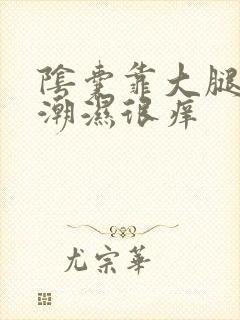 陰囊靠大腿
潮濕很痒
尤宗華